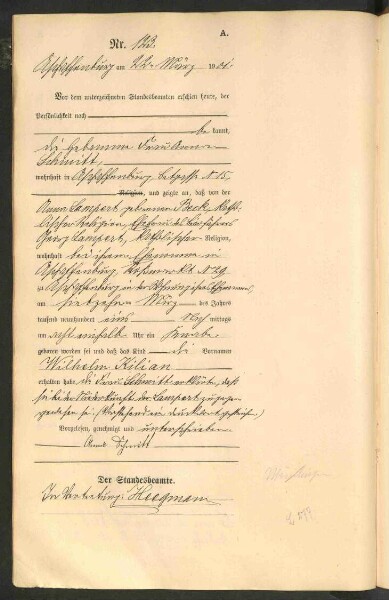 A.
Nr. 123.
Aschaffenburg am 22. März 1901.
Vor dem unterzeichneten Standesbeamten erschien heute, der
Persönlichkeit nach
be kannt,
die Hebamme Frau Anna
Schmitt,
wohnhaft in Aschaffenburg
Religion, und zeigte an, daß von der
Anna Lampert geborenen Beck, katho-
lischer Religion, Ehefrau des
Georg Lampert, katholischer Religion,
wohnhaft bei ihrem Ehemanne in
Aschaffenburg,
zu Aschaffenburg in der Wohnung ihres Ehemannes,
am siebzehnten März des Jahres
tausend neunhundert eins Nachmittags
um acht einhalb Uhr ein Knabe
geboren worden sei und daß das Kind die Vornamen
Wilhelm Kilian
erhalten habe. Die Frau Schmitt erklärte, daß
sie bei der Niederkunft der Lampert zugegen
gewesen sei.
Vorgelesen, genehmigt und unterschrieben
Anna Schmitt
Der Standesbeamte.
In Vertretung: Heegmann